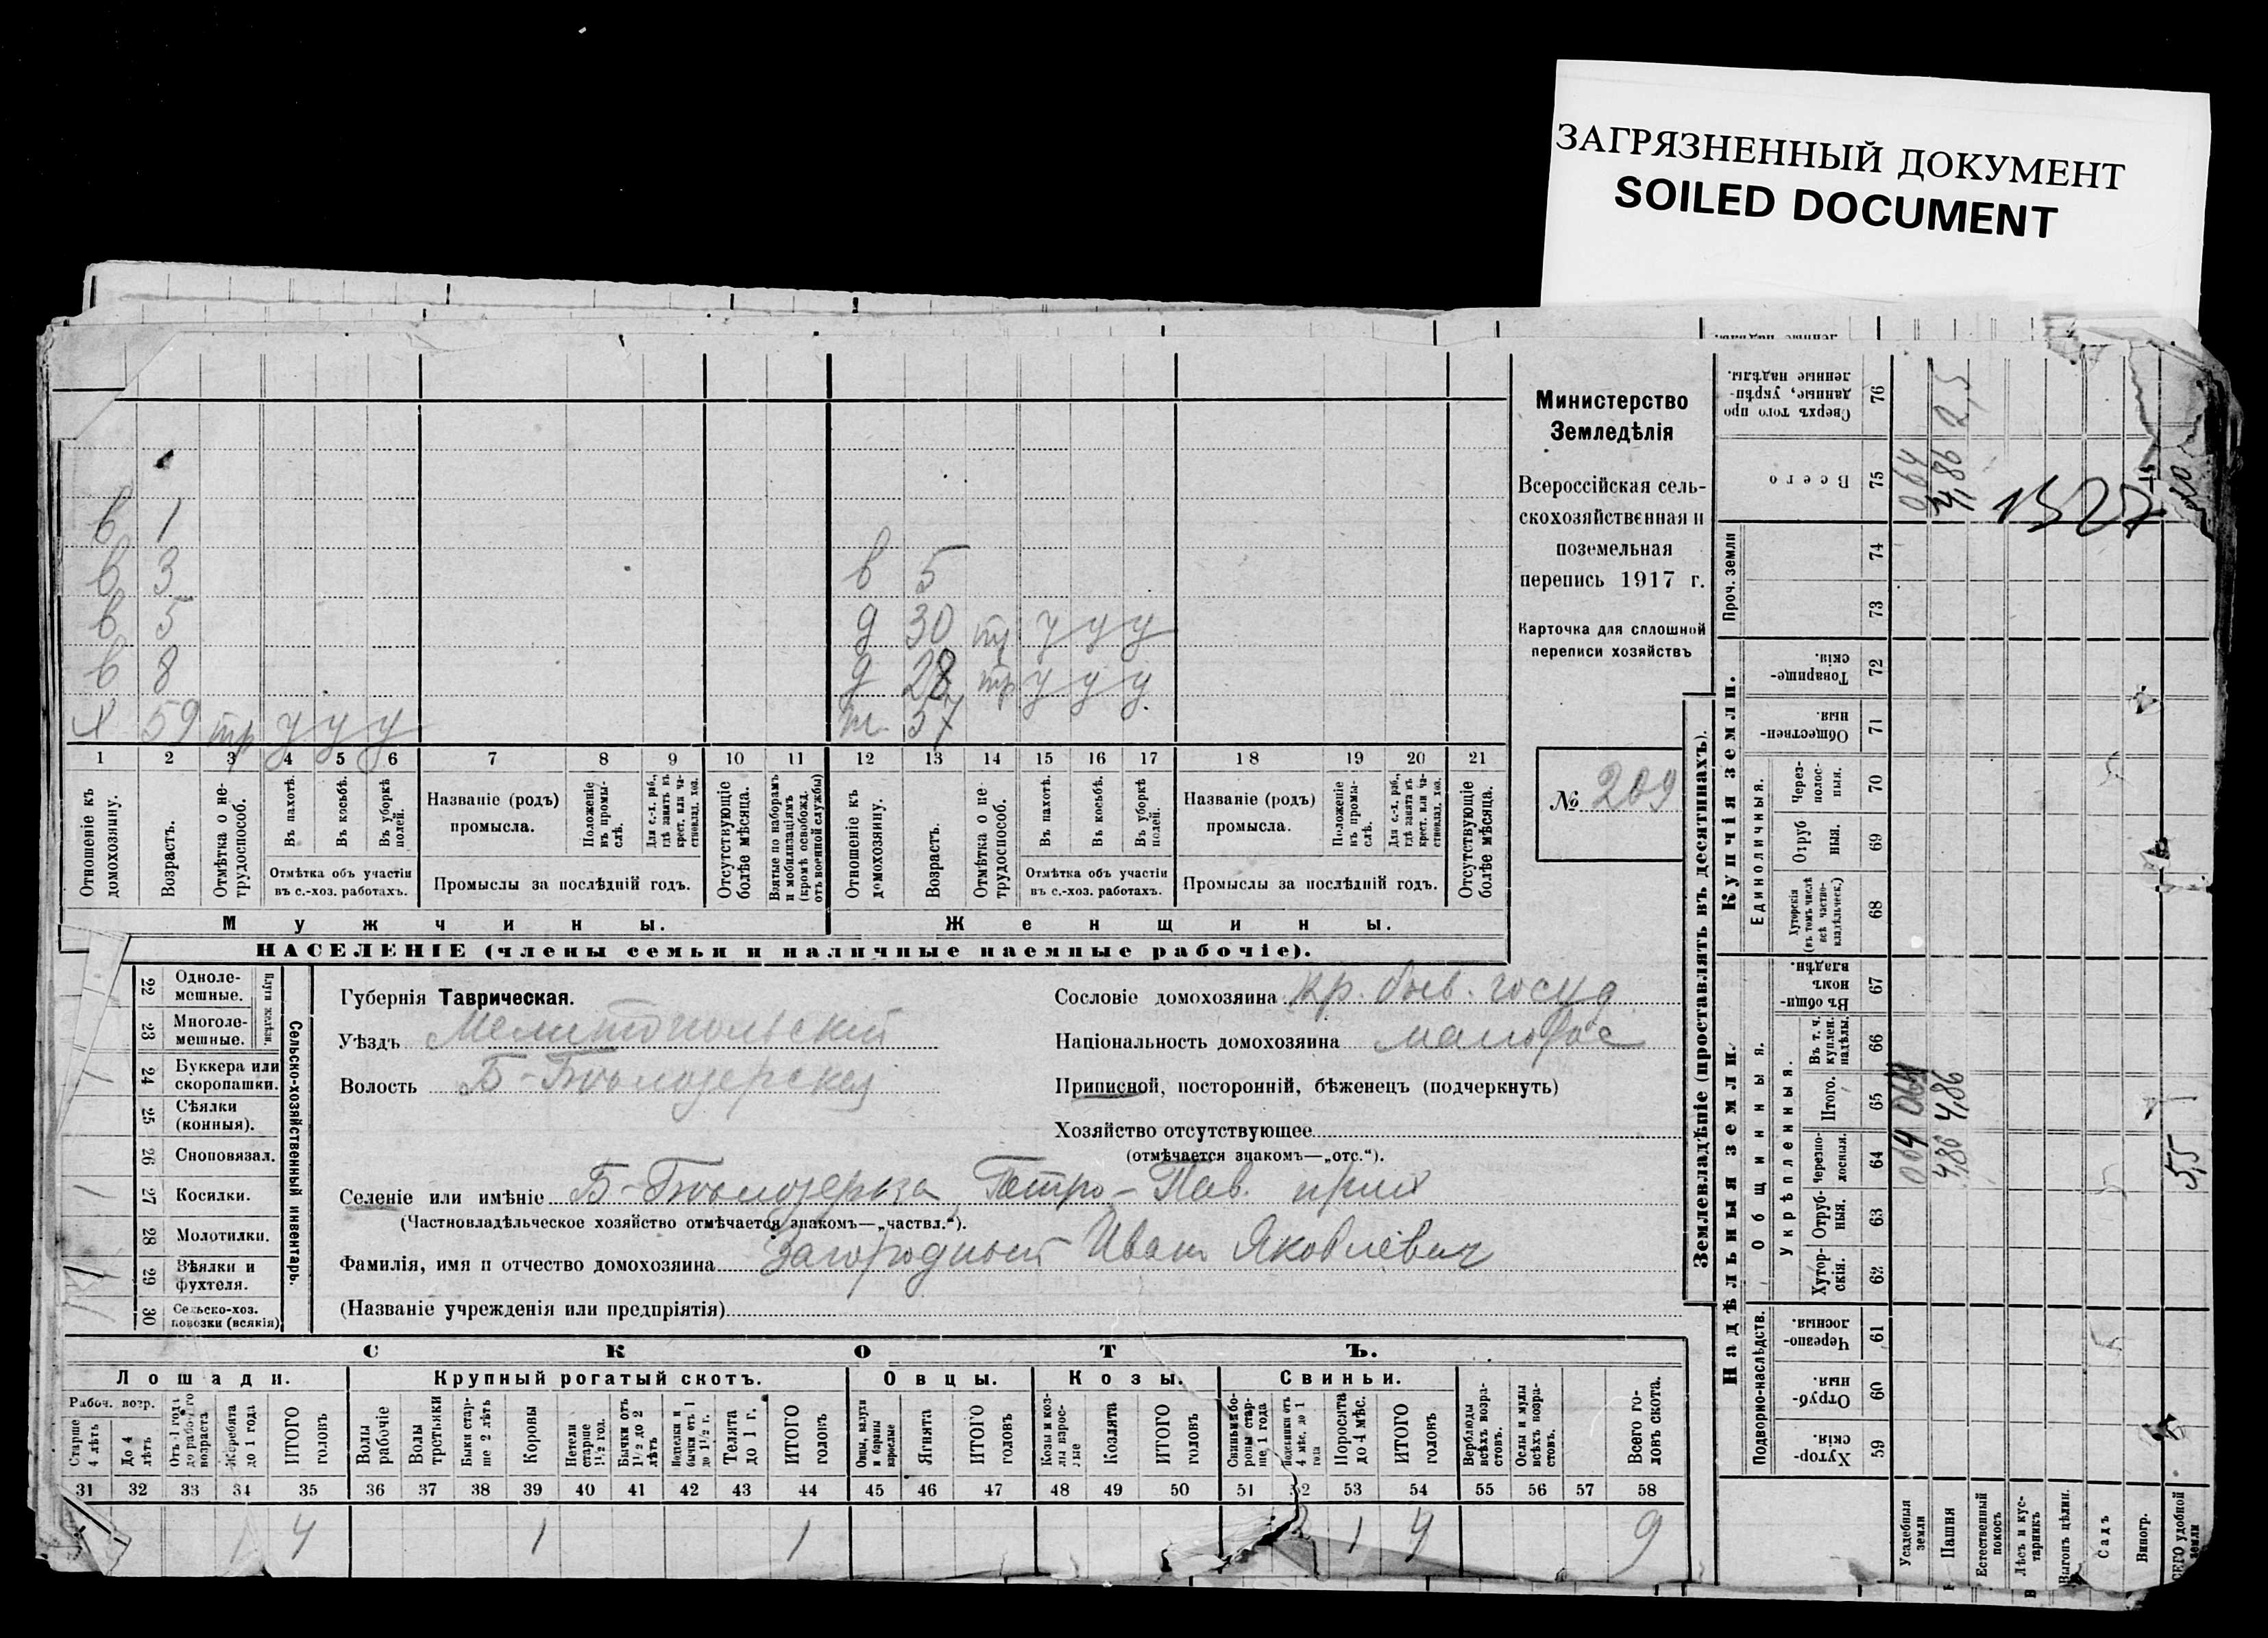 ЗАГРЯЗНЕННЫЙ ДОКУМЕНТ
SOILED DOCUMENT
Министерство
Земледѣлія
Всероссійская сель-
скохозяйственная и
поземельная
перепись 1917 г.
Карточка для сплошной
переписи хозяйствъ
№ 209
в 1
в 3 в 5
в 5 д 30 тр у у у
в 8 д 28 тр у у у
х 59 тр у у у ж 57
1 2 3 4 5 6 7 8 9 10 11 12 13 14 15 16 17 18 19 20 21
Отношеніе къ домохозяину.
Возрастъ.
Отмѣтка о не-трудоспособ.
Въ пахотѣ.
Въ косьбѣ.
Въ уборкѣ полей.
Отмѣтка объ участіи
въ с.-хоз. работахъ.
Названіе (родъ)
промысла.
Положеніе въ промы-слѣ.
Для с.-х. раб., гдѣ занятъ въ крест. или ча-стновлад. хоз.
Промыслы за послѣдній годъ.
Отсутствующіе болѣе мѣсяца.
Взятые по наборамъ и мобилизаціямъ (кромѣ освобожд. отъ военной службы)
Отношеніе къ домохозяину.
Возрастъ.
Отмѣтка о не-трудоспособ.
Въ пахотѣ.
Въ косьбѣ.
Въ уборкѣ полей.
Отмѣтка объ участіи
въ с.-хоз. работахъ.
Названіе (родъ)
промысла.
Положеніе въ промы-слѣ.
Для с.-х. раб., гдѣ занята въ крест. или ча-стновлад. хоз.
Промыслы за послѣдній годъ.
Отсутствующіе болѣе мѣсяца.
Мужчины. Женщины.
НАСЕЛЕНІЕ (члены семьи и наличные наемные рабочіе).
22 Одноле-мешные.
23 Многоле-мешные.
Плуги желѣзн.
24 Буккера или скоропашки.
25 Сѣялки (конныя).
26 Сноповязал.
27 Косилки. 1
28 Молотилки.
29 Вѣялки и фухтеля. 1
30 Сельско-хоз. повозки (всякія)
Сельско-хозяйственный инвентарь.
Губернія Таврическая.
Уѣздъ Мелитопольскій
Волость Б-Бѣлозерская
Сословіе домохозяина кр. быв. госуд
Національность домохозяина малорос
Приписной, посторонній, бѣженецъ (подчеркнуть)
Хозяйство отсутствующее
(отмѣчается знакомъ—„отс.“).
Селеніе или имѣніе Б-Бѣлозерка Петро-Пав. прих
(Частновладѣльческое хозяйство отмѣчается знакомъ—„частвл.“).
Фамилія, имя и отчество домохозяина Загородный Иванъ Яковлевич
(Названіе учрежденія или предпріятія)
СКОТЪ.
Лошади. Крупный рогатый скотъ. Овцы. Козы. Свиньи.
Рабоч. возр.
Старше 4 лѣтъ
До 4 лѣтъ
Отъ 1 года до рабочаго возраста
Жеребята до 1 года
ИТОГО головъ
Волы рабочіе
Волы третьяки
Быки стар-ше 2 лѣтъ
Коровы
Нетели старше 1½ год.
Бычки отъ 1½ до 2 лѣтъ
Нетелки и бычки отъ 1 до 1½ г.
Телята до 1 г.
ИТОГО головъ
Овцы, валухи и бараны взрослые
Ягнята
ИТОГО головъ
Козы и коз-лы взрос-лые
Козлята
ИТОГО головъ
Свиньи и бо-ровы стар-ше 1 года
Подсвинки отъ 4 мѣс. до 1 года
Поросята до 4 мѣс.
ИТОГО головъ
Верблюды всѣхъ возра-стовъ.
Ослы и мулы всѣхъ возра-стовъ.
Всего го-ловъ скота.
31 32 33 34 35 36 37 38 39 40 41 42 43 44 45 46 47 48 49 50 51 52 53 54 55 56 57 58
1 4 1 1 1 4 9
Землевладѣніе (проставлять въ десятинахъ).
Надѣльныя земли. Купчія земли.
Подворно-наслѣдств.
Общинныя.
Укрѣпленныя.
Единоличныя.
Проч. земли
Хутор-скія. 59
Отруб-ныя. 60
Черезпо-лосныя. 61
Хутор-скія. 62
Отруб-ныя. 63
Черезпо-лосныя. 64
Итого. 65
Въ т. ч. куплен. надѣлы. 66
Въ общи-номъ владѣн. 67
Хуторскія (въ томъ числѣ всѣ частно-владѣльческ.) 68
Отруб ныя. 69
Через-полос-ныя. 70
Обществен-ныя 71
Товарище-скія. 72
73
74
Всего 75
Сверхъ того про данные, укрѣп-ленные надѣлы. 76
Усадебныя земли 064 064 064
Пашня 4,86 4,86 4,86 2,5
Естественный покосъ
Лѣсъ и кус-тарникъ
Выгонъ цѣлин.
Садъ
Виногр.
ВСЕГО удобной земли 5,5
1527